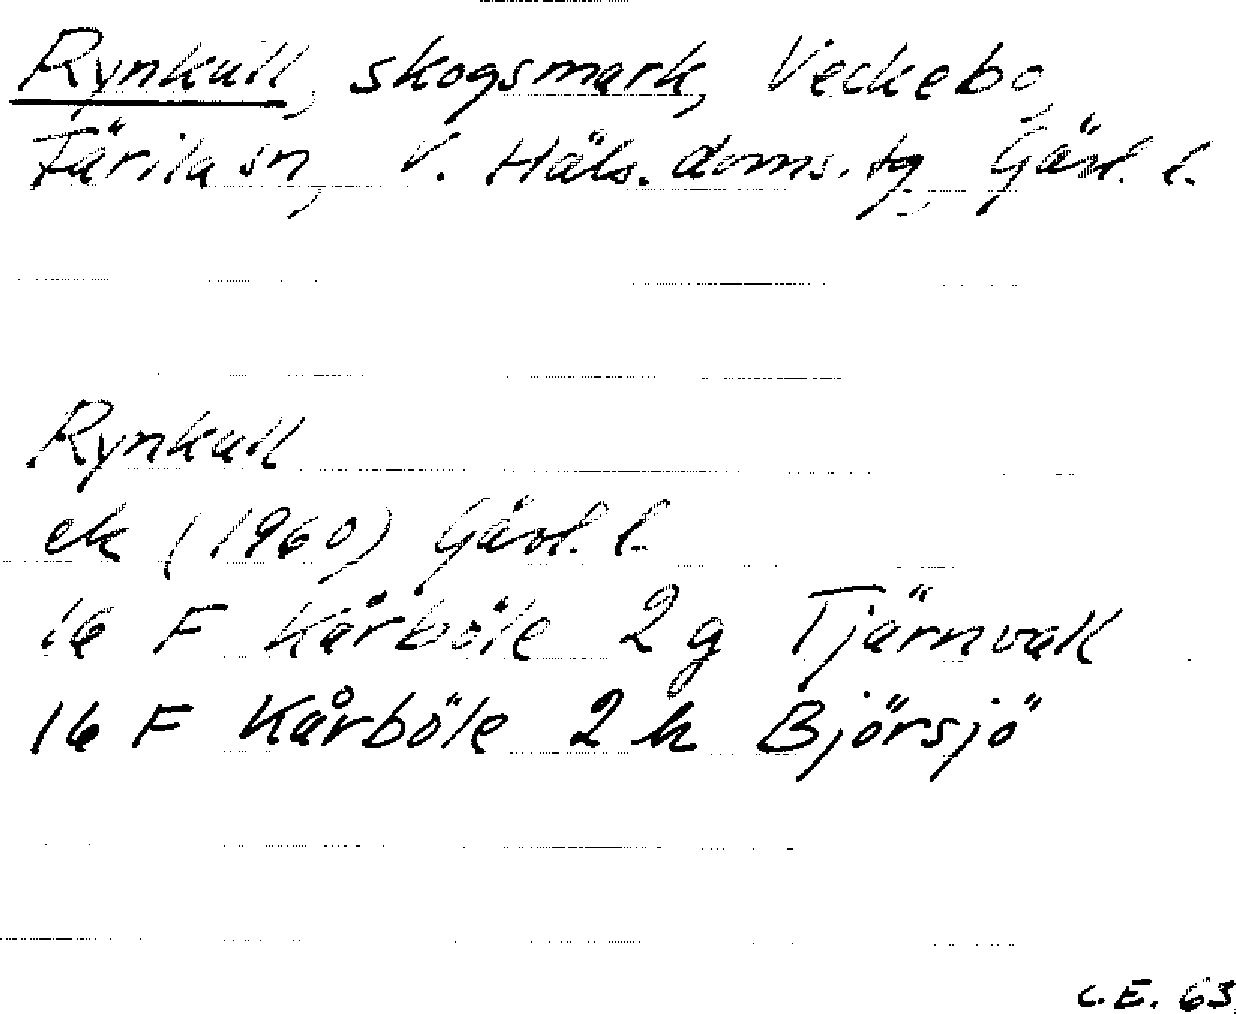 Rynkull, skogsmark, Veckebo,
Färila sn, V. Häls. doms. tg, Gävl. l.
Rynkull
ek (1960) Gävl. l.
16 F Kårböle 2 g Tjärnvall
16 F Kårböle 2 h Björsjö
C.E. 63